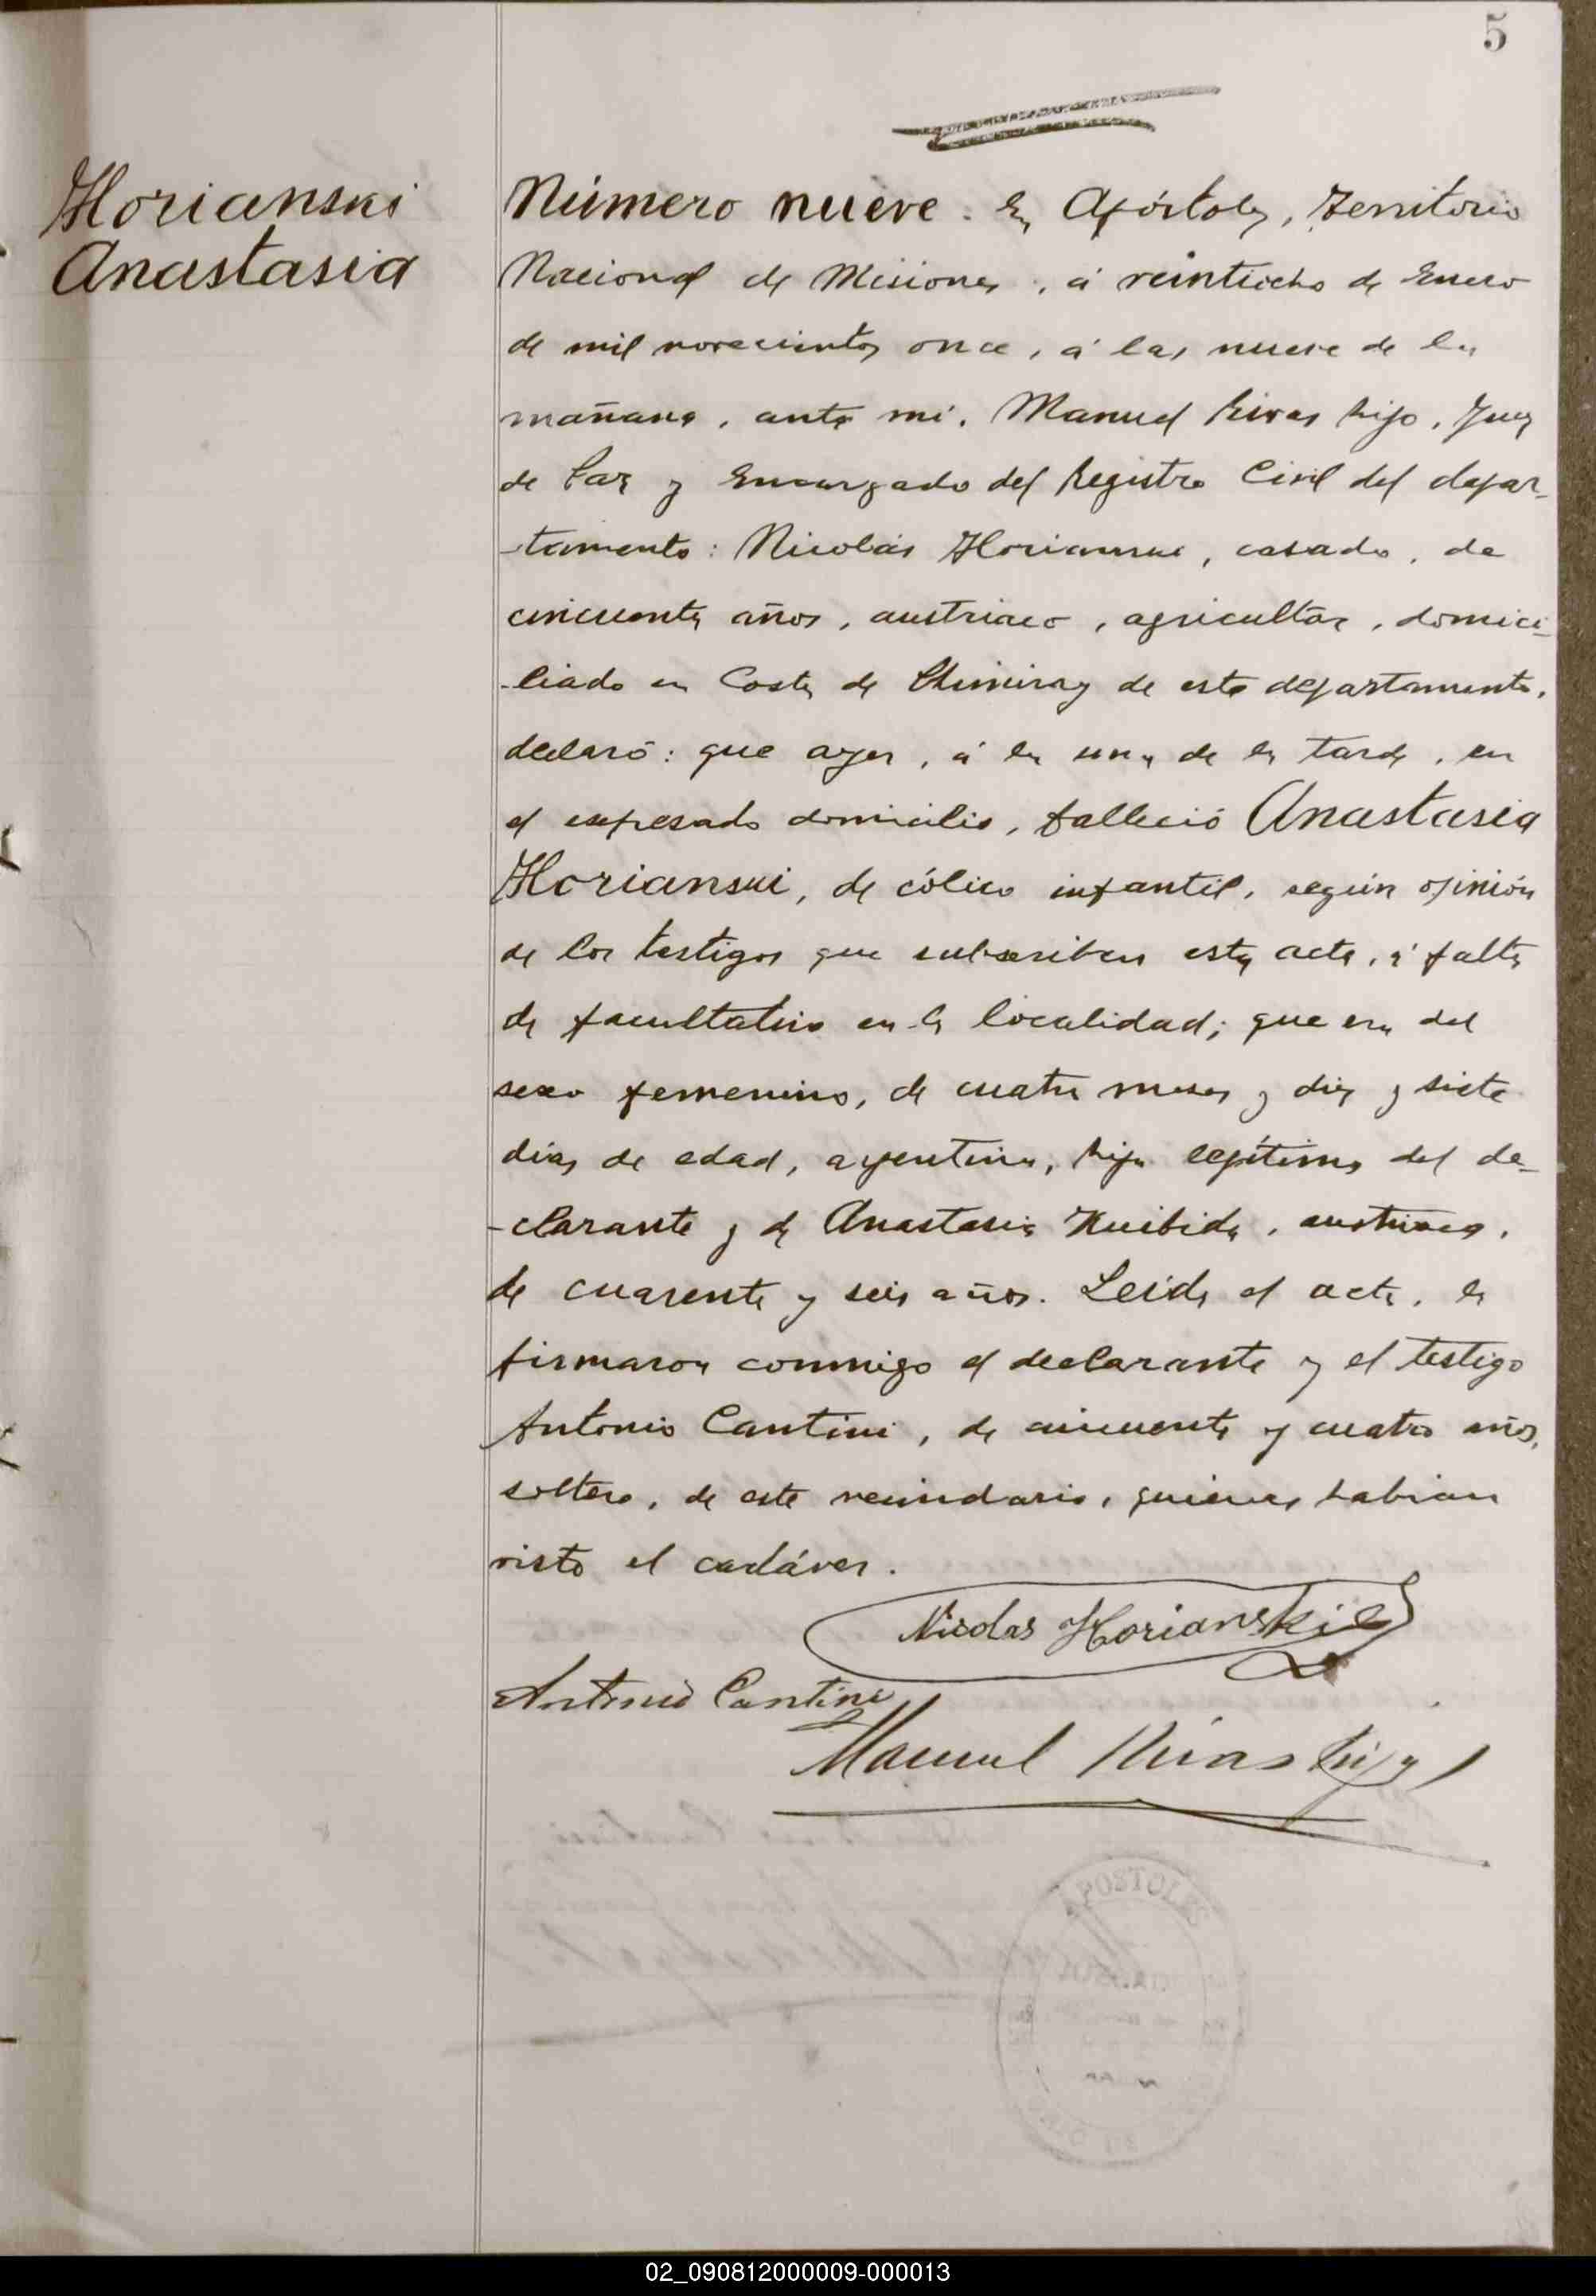 5
Horianski
Anastasia
Número nueve. En Apóstoles, Territorio
Nacional de Misiones, á veintiocho de Enero
de mil novecientos once, á las nueve de la
mañana, ante mí, Manuel Rivas hijo, Juez
de Paz y Encargado del Registro Civil del depar-
-tamento: Nicolás Horianski, casado, de
cincuenta años, austriaco, agricultor, domici-
-liado en Costa de Chimiray de este departamento,
declaró: que ayer, á la una de la tarde, en
el expresado domicilio, falleció Anastasia
Horianski, de cólico infantil, según opinión
de los testigos que subscriben esta acta, á falta
de facultativo en la localidad; que era del
sexo femenino, de cuatro meses y diez y siete
días de edad, argentina, hija legítima del de-
-clarante y de Anastasia Kuibida, austriaca,
de cuarenta y seis años. Leida el acta, la
firmaron conmigo el declarante y el testigo
Antonio Cantini, de cincuenta y cuatro años,
soltero, de este vecindario, quienes habían
visto el cadáver.
Nicolas Horianski
Antonio Cantini
Manuel Rivas hijo
APOSTOLES
02_090812000009-000013